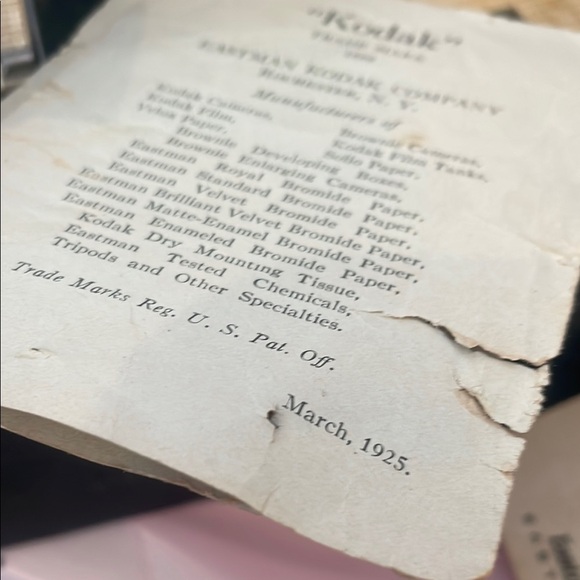 "Kodak"
TRADE MARK
EASTMAN KODAK COMPANY
ROCHESTER, N. Y.
Manufacturers of
Kodak Cameras, Brownie Cameras,
Kodak Film, Kodak Film Tanks,
Velox Paper, Solio Paper,
Brownie Developing Boxes,
Brownie Enlarging Cameras,
Eastman Royal Bromide Paper,
Eastman Standard Bromide Paper,
Eastman Velvet Bromide Paper,
Eastman Brilliant Velvet Bromide Paper,
Eastman Matte-Enamel Bromide Paper,
Eastman Enameled Bromide Paper,
Kodak Dry Mounting Tissue,
Eastman Tested Chemicals,
Tripods and Other Specialties.
Trade Marks Reg. U. S. Pat. Off.
March, 1925.